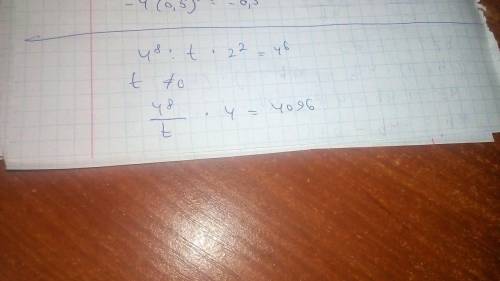 - 4 (0,5) = - 0,5
4⁸ : t · 2² = 4⁶
t ≠0
4⁸/t · 4 = 4096